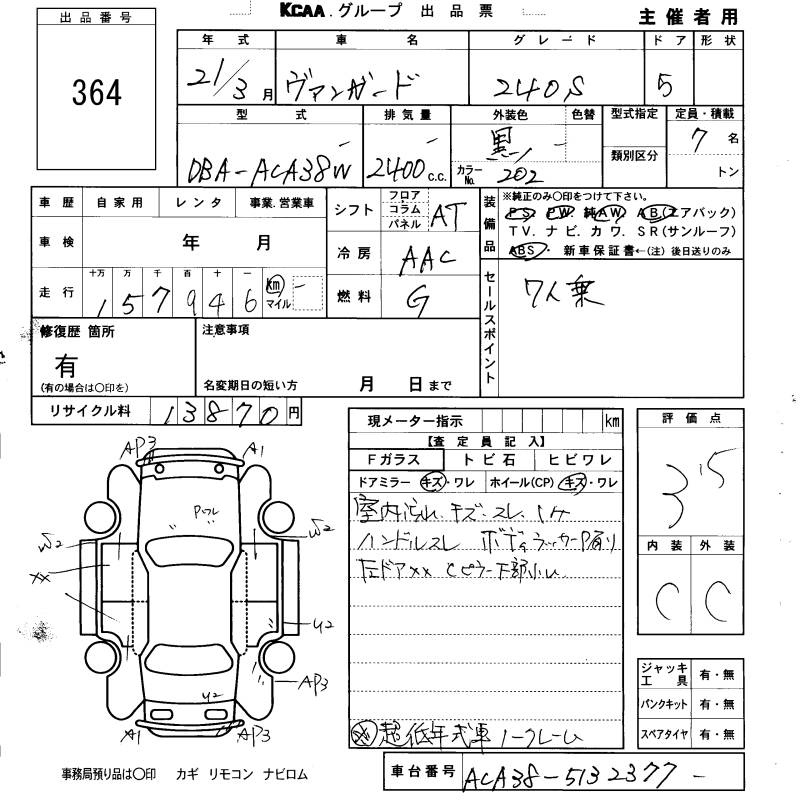 KCAA.グループ 出品票
主催者用
出品番号
364
年式 車名 グレード ドア 形状
21/3月 ヴァンガード 240S 5
型式 排気量 外装色 色替 型式指定 定員・積載
DBA-ACA38W - 2400c.c. 黒 - 7名
カラーNo. 202 類別区分 トン
車歴 自家用 レンタ 事業.営業車
シフト フロア コラム パネル AT
装備品 ※純正のみ○印をつけて下さい。
PS. PW. 純AW. AB.(エアバック)
TV. ナビ. カワ. SR(サンルーフ)
ABS・ 新車保証書←(注) 後日送りのみ
車検 年 月
冷房 AAC
走行 十万 万 千 百 十 一
157946 km マイル -
燃料 G
セールスポイント 7人乗
修復歴 箇所
有
(有の場合は○印を)
注意事項
名変期日の短い方 月 日まで
リサイクル料 13870円
現メーター指示 km
【査定員記入】
Fガラス トビ石 ヒビワレ
ドアミラー キズ・ワレ ホイール(CP) キズ・ワレ
室内汚れ.キズ.スレ.
ハンドルスレ ボディ
左ドアxx Cピラー下部
超低年式車 ノークレーム
評価点
3.5
内装 外装
C C
ジャッキ工具 有・無
パンクキット 有・無
スペアタイヤ 有・無
AP3 A1
W2 W2
xx
U2
AP3
U2
A1 AP3
事務局預り品は○印 カギ リモコン ナビロム
車台番号 ACA38-5132377 -